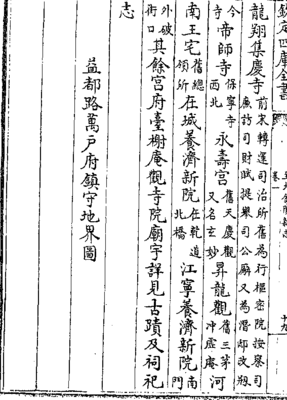 欽定四庫全書
卷一
十九
龍翔集慶寺前宋轉運司治所舊為行樞密院按察司
廉訪司財賦提舉司公廨又為潛邸改剏
今帝師寺保寧寺西北永壽宮舊天慶觀又名玄妙昇龍觀舊三茅冲虛庵河
南王宅舊總領所在城養濟新院在乾道北橋江寧養濟新院南門
外破衖口其餘宮府臺榭庵觀寺院廟宇詳見古蹟及祠祀
志
益都路萬戶府鎮守地界圖